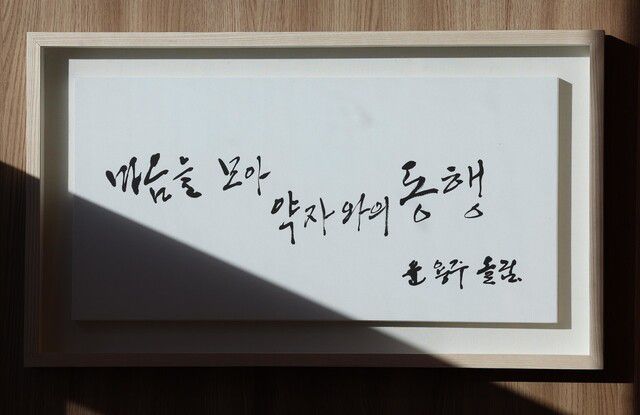 마음을 모아
약자와의 동행
윤용주 올림